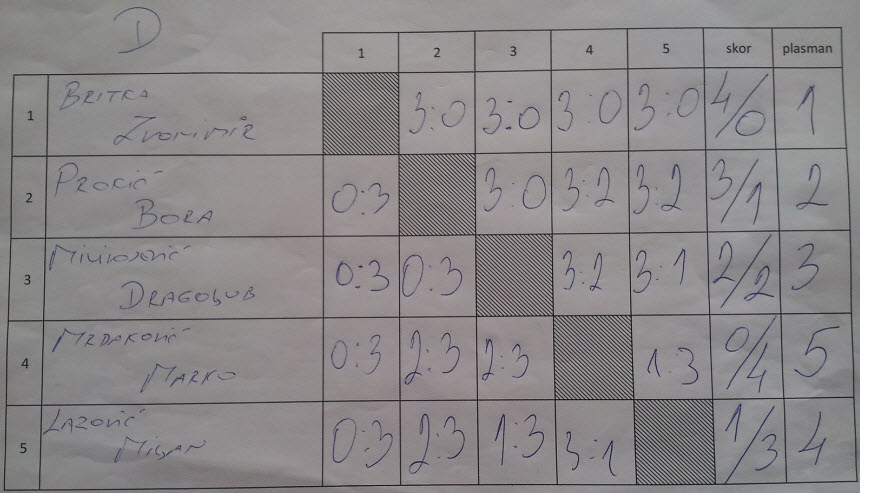 D
1 2 3 4 5 skor plasman
1 BRITKA Zvonimir 3:0 3:0 3:0 3:0 4/0 1
2 PROCIĆ BORA 0:3 3:0 3:2 3:2 3/1 2
3 DRAGOLJUB 0:3 0:3 3:2 3:1 2/2 3
4 MRDAKOVIĆ MARKO 0:3 2:3 2:3 1:3 0/4 5
5 LAZOVIĆ 0:3 2:3 1:3 3:1 1/3 4